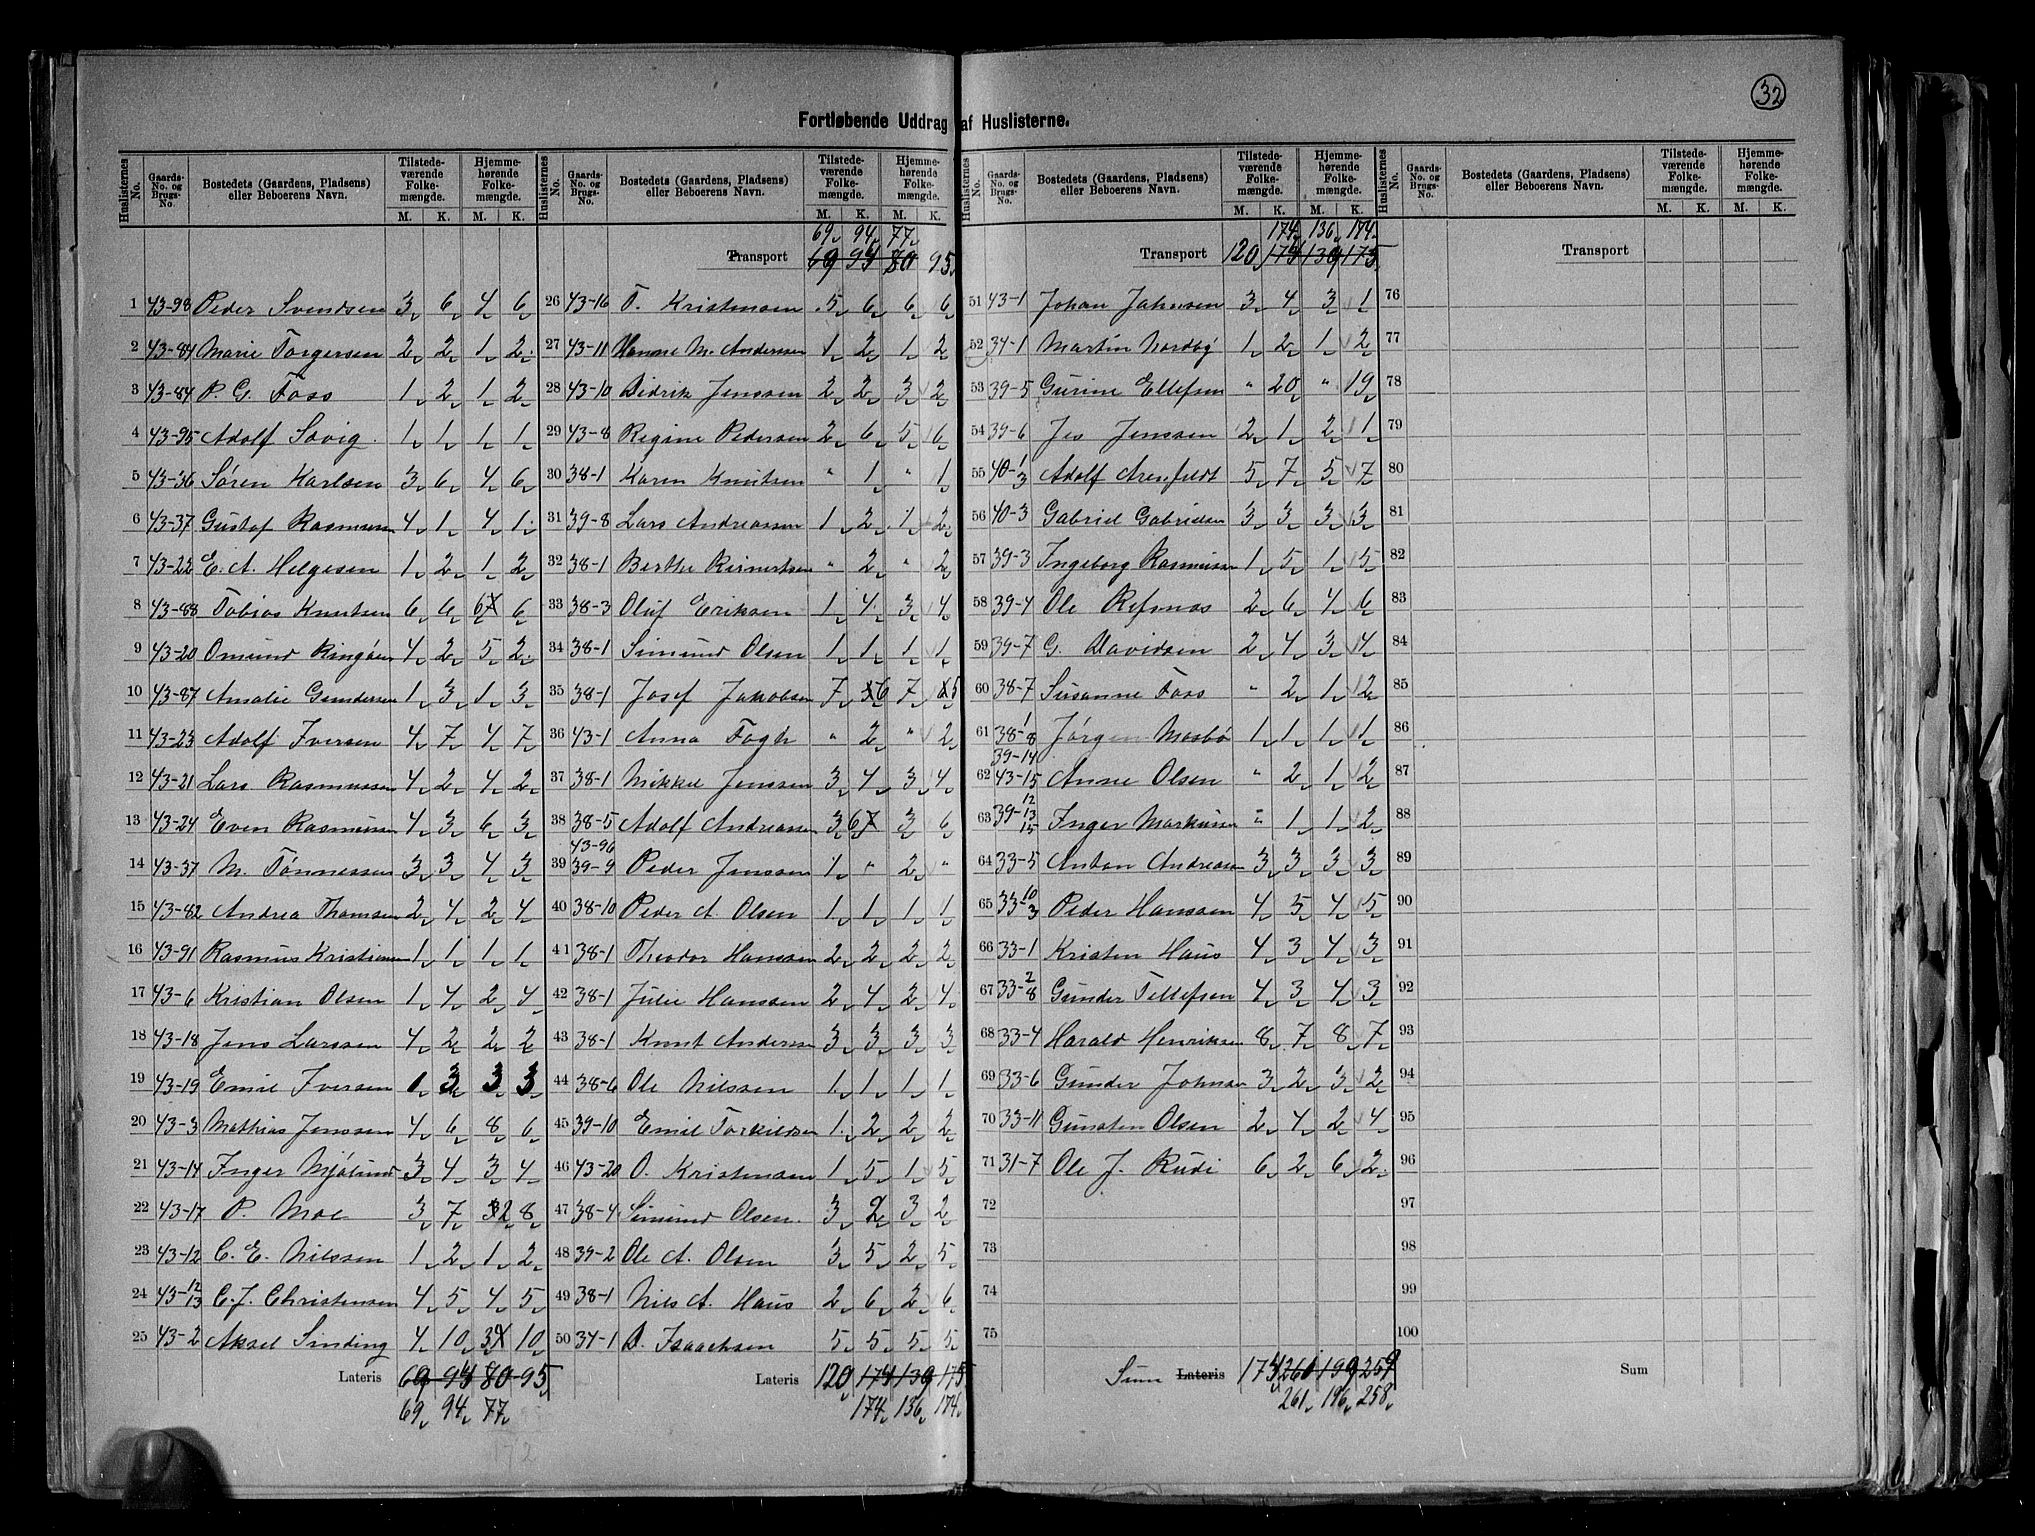 32
Fortløbende Uddrag af Huslisterne.
Huslisternes No. Gaards-No. og Brugs-No. Bostedets (Gaardens, Pladsens) eller Beboerens Navn. Tilstedeværende Folkemængde. M. K. Hjemmehørende Folkemængde. M. K.
1 43-98 Peder Svendsen 3 6 4 6
2 43-84 Marie Torgersen 2 2 1 2
3 43-84 P. G. Foss 1 2 1 2
4 43-95 Adolf Søvig 1 1 1 1
5 43-36 Søren Karlsen 3 6 4 6
6 43-37 Gustaf Rasmussen 4 1 4 1
7 43-22 E. A. Helgesen 1 2 1 2
8 43-88 Tobias Knutsen 6 6 6 6
9 43-20 Omund Ringøen 4 2 5 2
10 43-87 Amalie Gundersen 1 3 1 3
11 43-23 Adolf Iversen 4 7 4 7
12 43-21 Lars Rasmussen 4 2 4 2
13 43-24 Even Rasmussen 4 3 6 3
14 43-37 M. Tönnessen 3 3 4 3
15 43-82 Andrea Thomsen 2 4 2 4
16 43-91 Rasmus Kristiansen 1 1 1 1
17 43-6 Kristian Olsen 1 4 2 4
18 43-18 Jens Larssen 4 2 2 2
19 43-19 Emil Iversen 1 3 3 3
20 43-3 Mathias Jenssen 4 6 8 6
21 43-14 Inger Mjölund 3 4 3 4
22 43-17 P. Moe 3 7 2 8
23 43-12 C. E. Nilssen 1 2 1 2
24 43-12 13 C. J. Christensen 4 5 4 5
25 43-2 Aksel Sinding 4 10 3 10
Lateris 69 94 80 95
69 94 77
172
Huslisternes No. Gaards-No. og Brugs-No. Bostedets (Gaardens, Pladsens) eller Beboerens Navn. Tilstedeværende Folkemængde. M. K. Hjemmehørende Folkemængde. M. K.
69 94 77
Transport 69 94 80 95
26 43-16 T. Kristensen 5 6 6 6
27 43-11 Hanne M. Andersen 1 2 1 2
28 43-10 Didrik Jenssen 2 2 3 2
29 43-8 Regine Pedersen 2 6 5 6
30 38-1 Karen Knutsen " 1 " 1
31 39-8 Lars Andreassen 1 2 1 2
32 38-1 Berthe Reinertsen " 2 " 2
33 38-3 Oluf Eriksen 1 4 3 4
34 38-1 Simund Olsen 1 1 1 1
35 38-1 Josef Jakobsen 7 6 7 5
36 43-1 Anna Fogh " 2 " 2
37 38-1 Mikkel Jenssen 3 4 3 4
38 38-5 Adolf Andreassen 3 6 3 6
39 43-96 39-9 Peder Jenssen 1 " 2 "
40 38-10 Peder A. Olsen 1 1 1 1
41 38-1 Theodor Hanssen 2 2 2 2
42 38-1 Julie Hanssen 2 4 2 4
43 38-1 Knut Andersen 3 3 3 3
44 38-6 Ole Nilssen 1 1 1 1
45 39-10 Emil Torkildsen 1 2 2 2
46 43-20 O. Kristensen 1 5 1 5
47 38-4 Simund Olsen 3 2 3 2
48 39-2 Ole A. Olsen 3 5 2 5
49 38-1 Nils A. Haus 2 6 2 6
50 34-1 D. Isaachsen 5 5 5 5
Lateris 120 174 139 175
174 136 174
Huslisternes No. Gaards-No. og Brugs-No. Bostedets (Gaardens, Pladsens) eller Beboerens Navn. Tilstedeværende Folkemængde. M. K. Hjemmehørende Folkemængde. M. K.
174 136 174
Transport 120 175 139 175
51 43-1 Johan Jahnsen 3 4 3 1
52 34-1 Martin Nordby 1 2 1 2
53 39-5 Gurine Ellefsen " 20 " 19
54 39-6 Jes Jenssen 2 1 2 1
55 40-1 3 Adolf Arenfeldt 5 7 5 7
56 40-3 Gabriel Gabrielsen 3 3 3 3
57 39-3 Ingeborg Rasmussen 1 5 1 5
58 39-4 Ole Refsnæs 2 6 4 6
59 39-7 G. Davidsen 2 4 3 4
60 38-7 Susanne Foss " 2 1 2
61 38-1 8 Jørgen Mosbø 1 1 1 1
62 39-14 43-15 Anne Olsen " 2 1 2
63 39-12 13 15 Inger Markussen " 1 1 2
64 33-5 Anton Andreasen 3 3 3 3
65 33-10 3 Peder Hanssen 4 5 4 5
66 33-1 Kristen Haus 4 3 4 3
67 33-2 8 Gunder Tellefsen 4 3 4 3
68 33-4 Harald Henriksen 8 7 8 7
69 33-6 Gunder Johnsen 3 2 3 2
70 33-11 Gunsten Olsen 2 4 2 4
71 31-7 Ole J. Rudi 6 2 6 2
72
73
74
75
Sum Lateris 173 260 199 259
261 196 258
Huslisternes No. Gaards-No. og Brugs-No. Bostedets (Gaardens, Pladsens) eller Beboerens Navn. Tilstedeværende Folkemængde. M. K. Hjemmehørende Folkemængde. M. K.
Transport
76
77
78
79
80
81
82
83
84
85
86
87
88
89
90
91
92
93
94
95
96
97
98
99
100
Sum